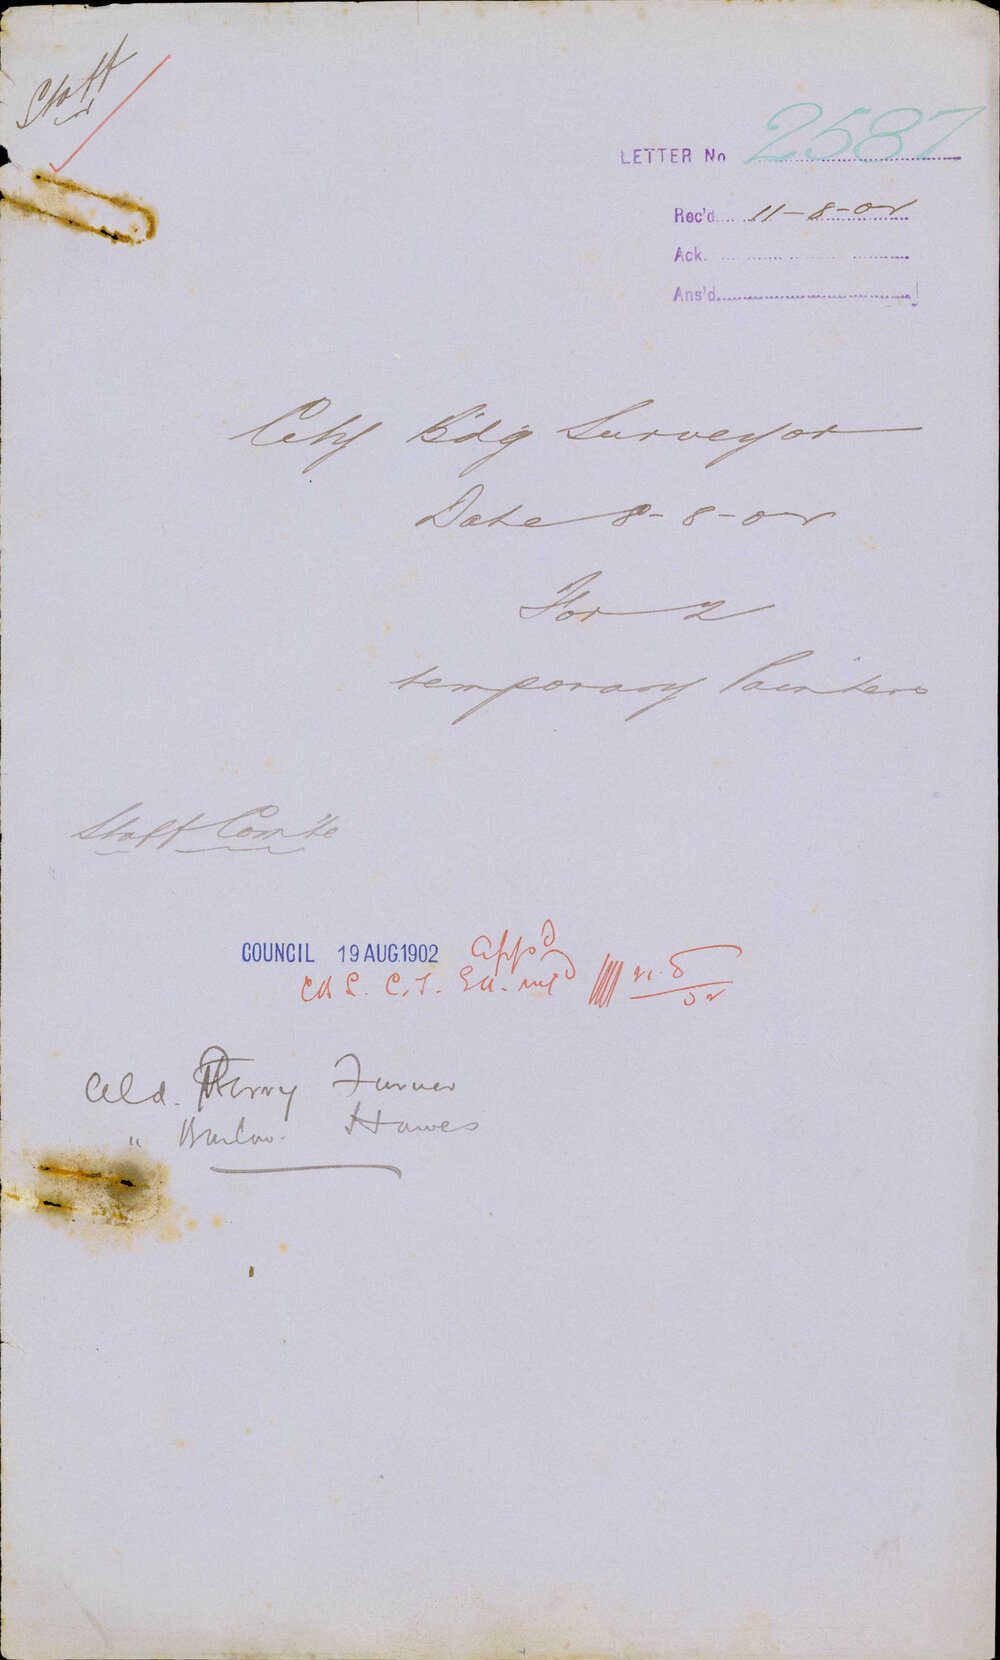 Staff
LETTER No 2587
Rec'd 11-8-02
Ack.
Ans'd
City Bdg Surveyor
Date 8-8-02
For 2
temporary Painters
Staff Com'te
COUNCIL 19 AUG.1902 app'd
C.T.
Ald. Penny Turner
" Barlow. Hawes